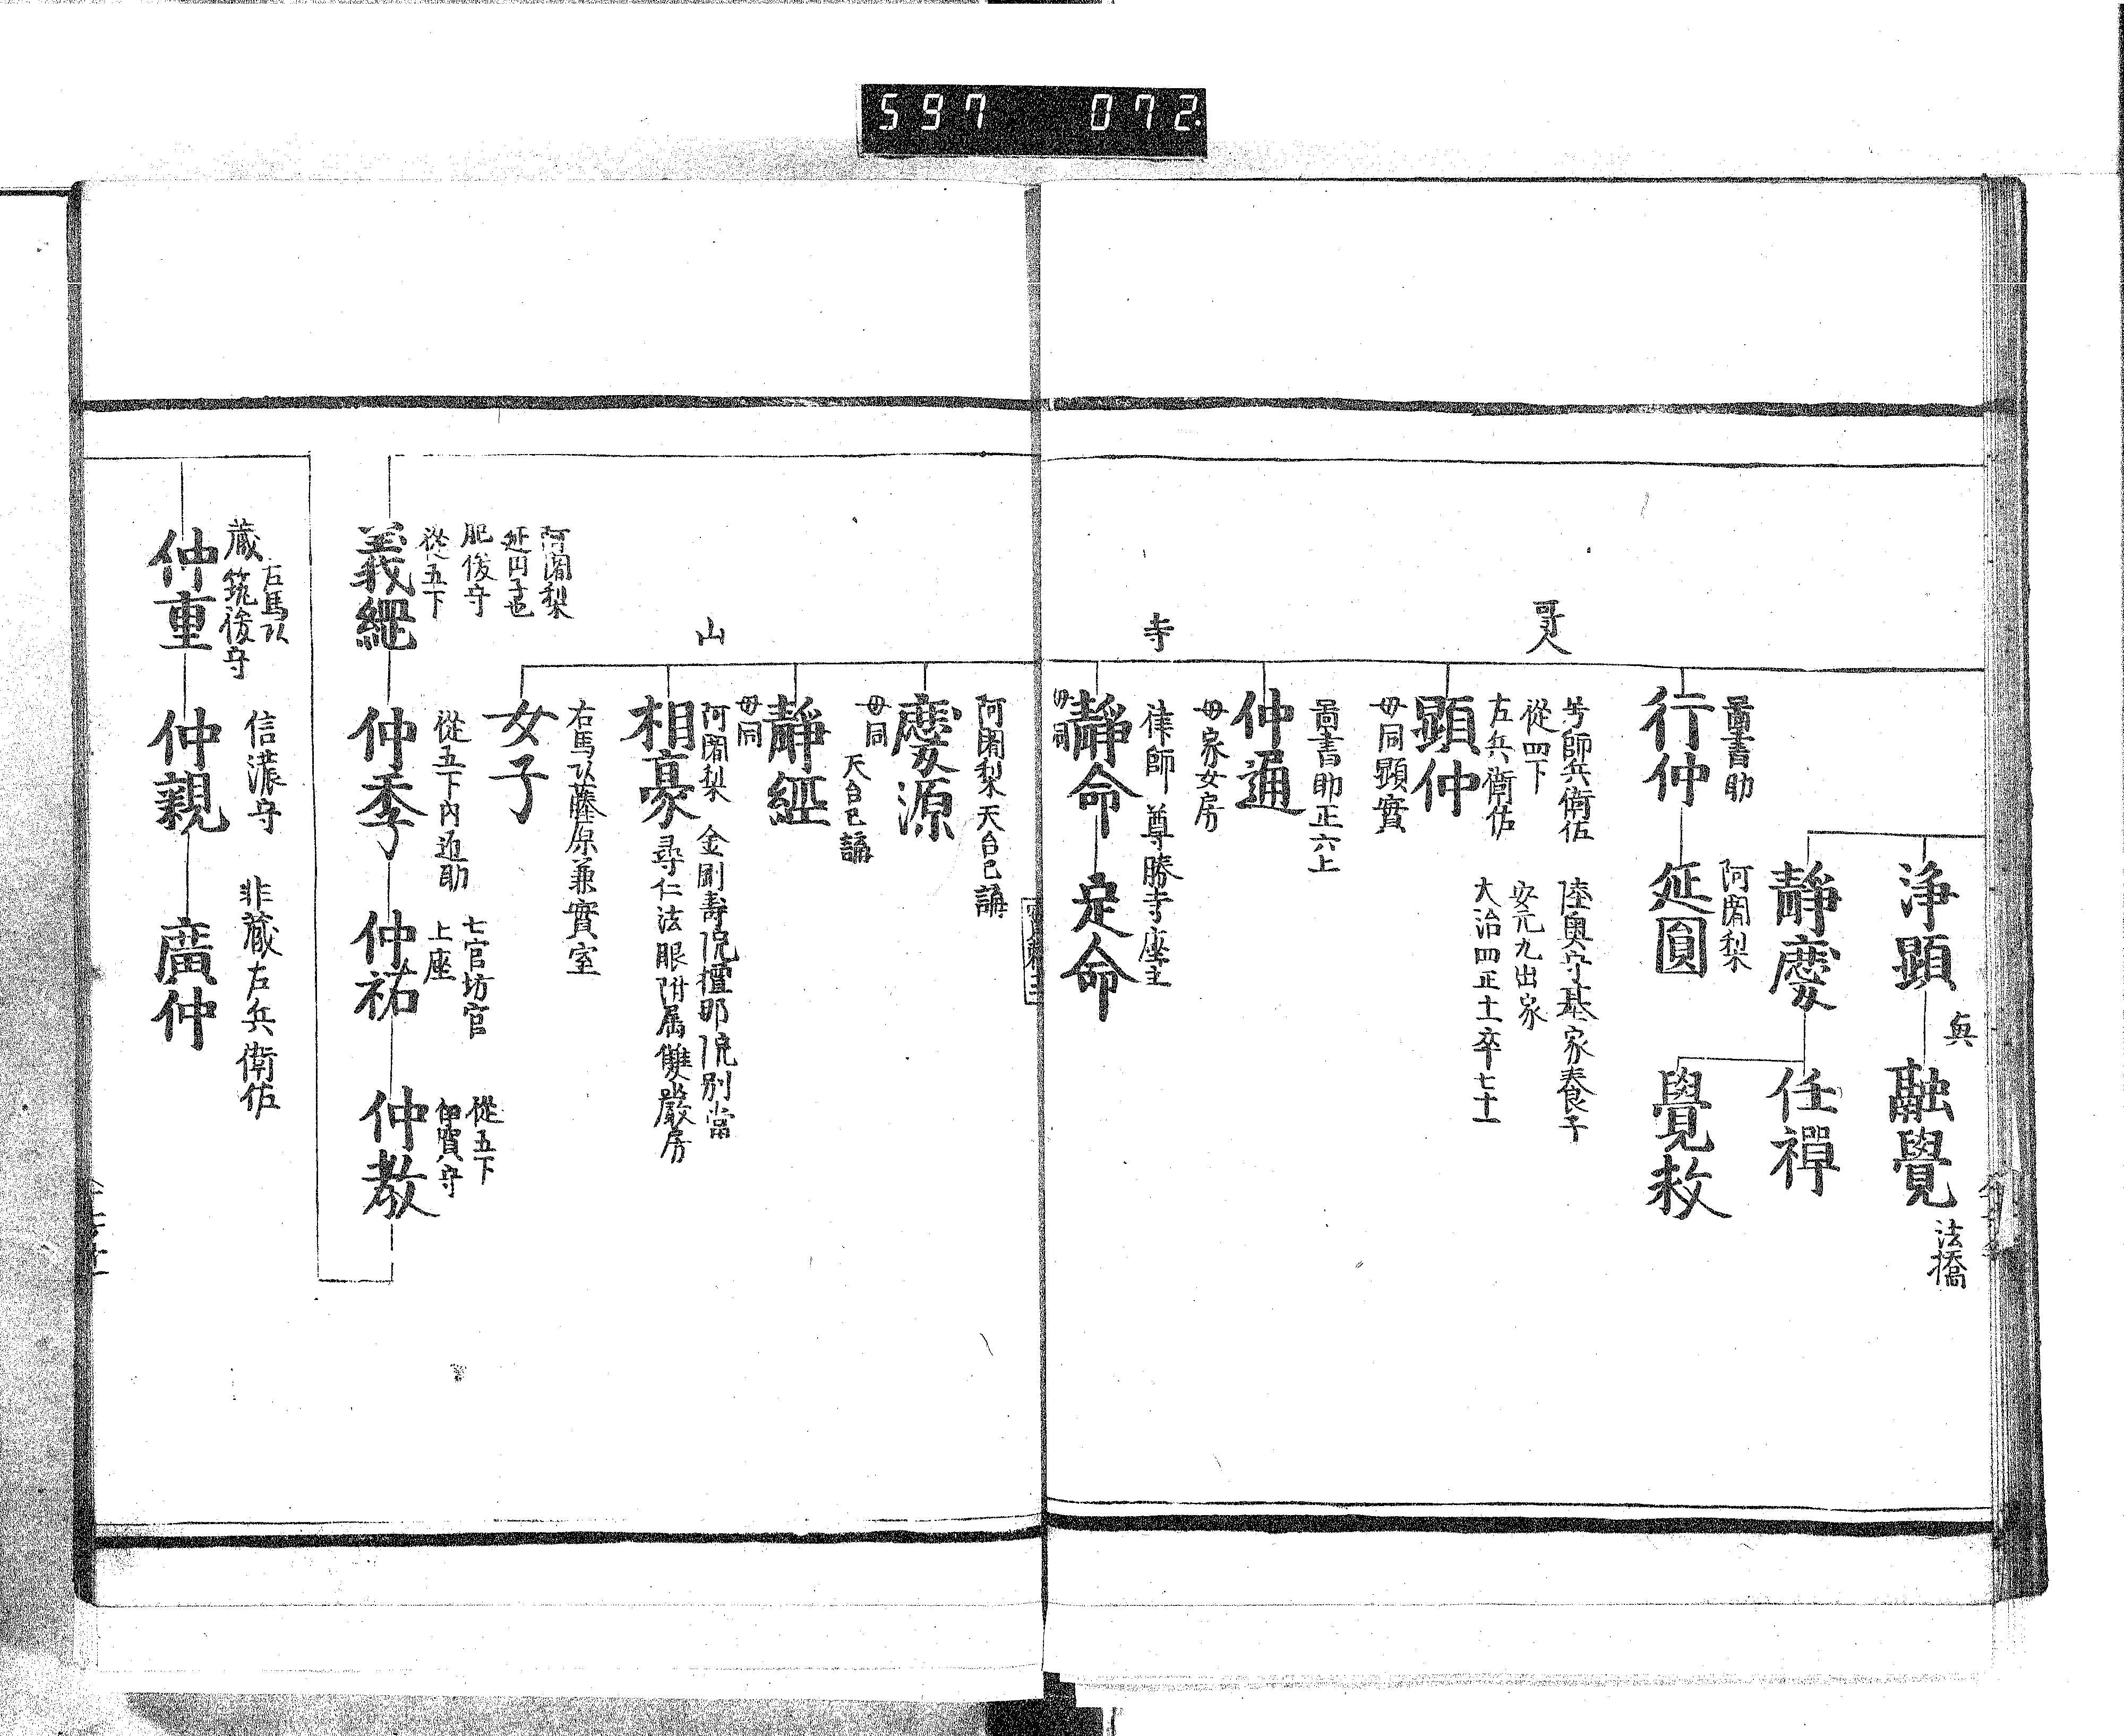 597 072
浄顕
興
融覺
法橋
静慶
任禪
覺救
啚書助
行仲
阿闍梨
延圓
哥人
号師兵衛佐
陸奥守基家養子
從四下
安元九出家
左兵衛佐
大治四正十一卒七十一
顕仲
母同顕實
啚書助正六上
仲通
母家女房
寺
律師 尊勝寺座主
静命
母同
定命
阿闍梨天台已講
慶源
母同
天台已講
静經
母同
山
阿闍梨 金剛壽院檀那院別當
相豪
尋仁法眼附属雙嚴房
右馬以藤原兼實室
女子
阿闍梨
延円子也
肥後守
從五下
義綱
從五下内近助
仲季
七官坊官
上座
仲祐
從五下
伊賀守
仲教
右馬以
蔵 筑後守
仲重
信濃守
仲親
非蔵左兵衛佐
廣仲